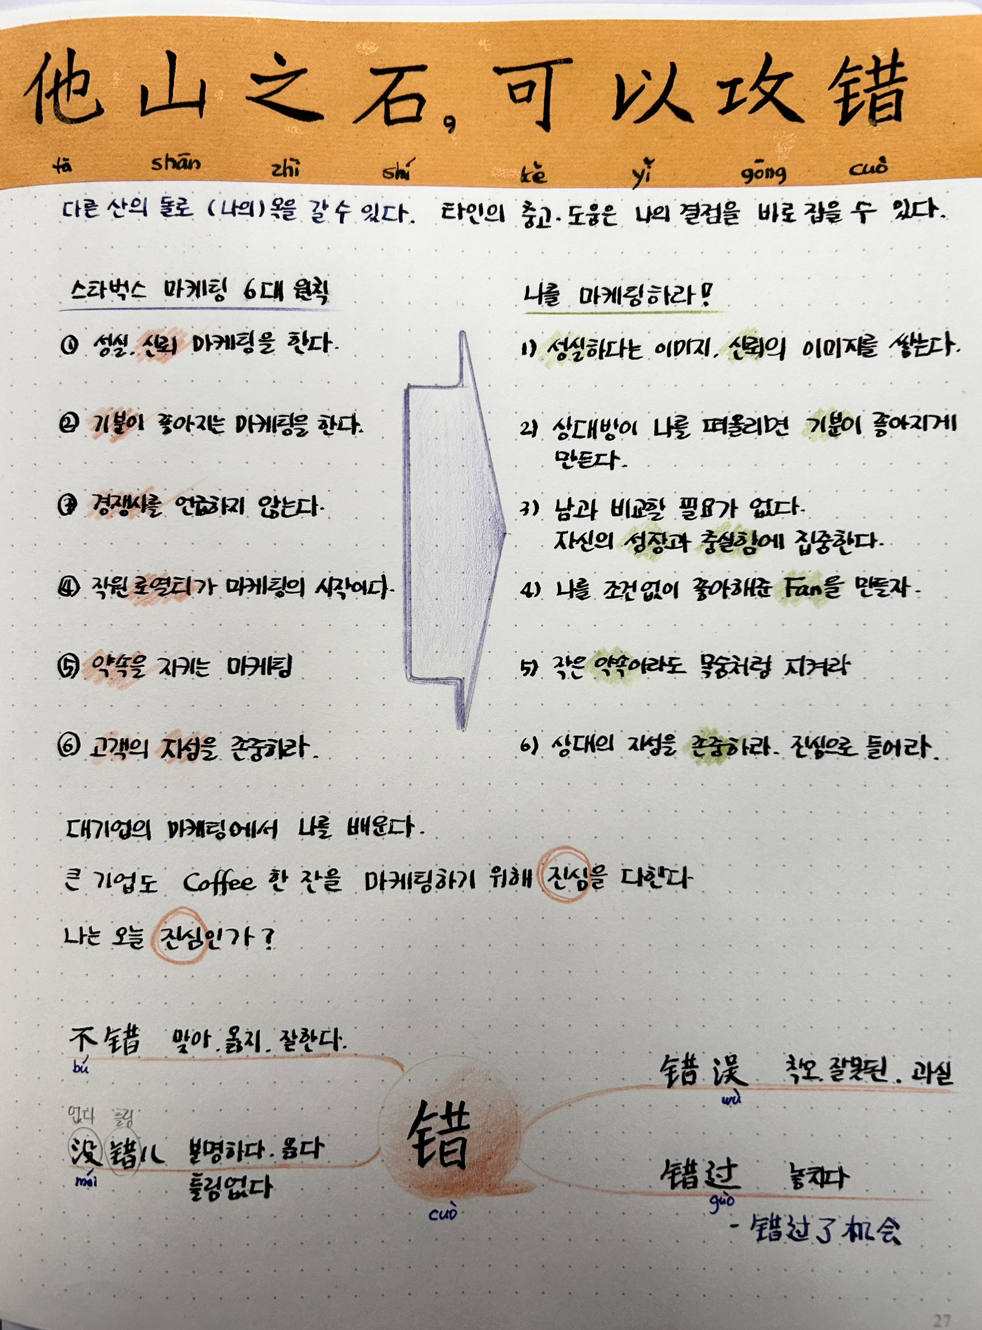 他山之石,可以攻错
tā shān zhī shí kě yǐ gōng cuò
다른 산의 돌로 (나의)옥을 갈 수 있다. 타인의 충고·도움은 나의 결점을 바로 잡을 수 있다.
스타벅스 마케팅 6대 원칙
① 성실, 신뢰 마케팅을 한다.
② 기분이 좋아지는 마케팅을 한다.
③ 경쟁사를 언급하지 않는다.
④ 직원 로열티가 마케팅의 시작이다.
⑤ 약속을 지키는 마케팅
⑥ 고객의 지성을 존중하라.
나를 마케팅하라!
1) 성실하다는 이미지, 신뢰의 이미지를 쌓는다.
2) 상대방이 나를 떠올리면 기분이 좋아지게
만든다.
3) 남과 비교할 필요가 없다.
자신의 성장과 충실함에 집중한다.
4) 나를 조건없이 좋아해준 Fan을 만들자.
5) 작은 약속이라도 목숨처럼 지켜라
6) 상대의 지성을 존중하라. 진심으로 들어라.
대기업의 마케팅에서 나를 배운다.
큰 기업도 Coffee 한 잔을 마케팅하기 위해 진심을 다한다
나는 오늘 진심인가?
不错 맞아. 옳지. 잘한다.
bú
없다 틀림
没错儿 분명하다. 옳다
méi
틀림없다
错
cuò
错误 착오. 잘못된. 과실
wù
错过 놓치다
guò
- 错过了机会
27